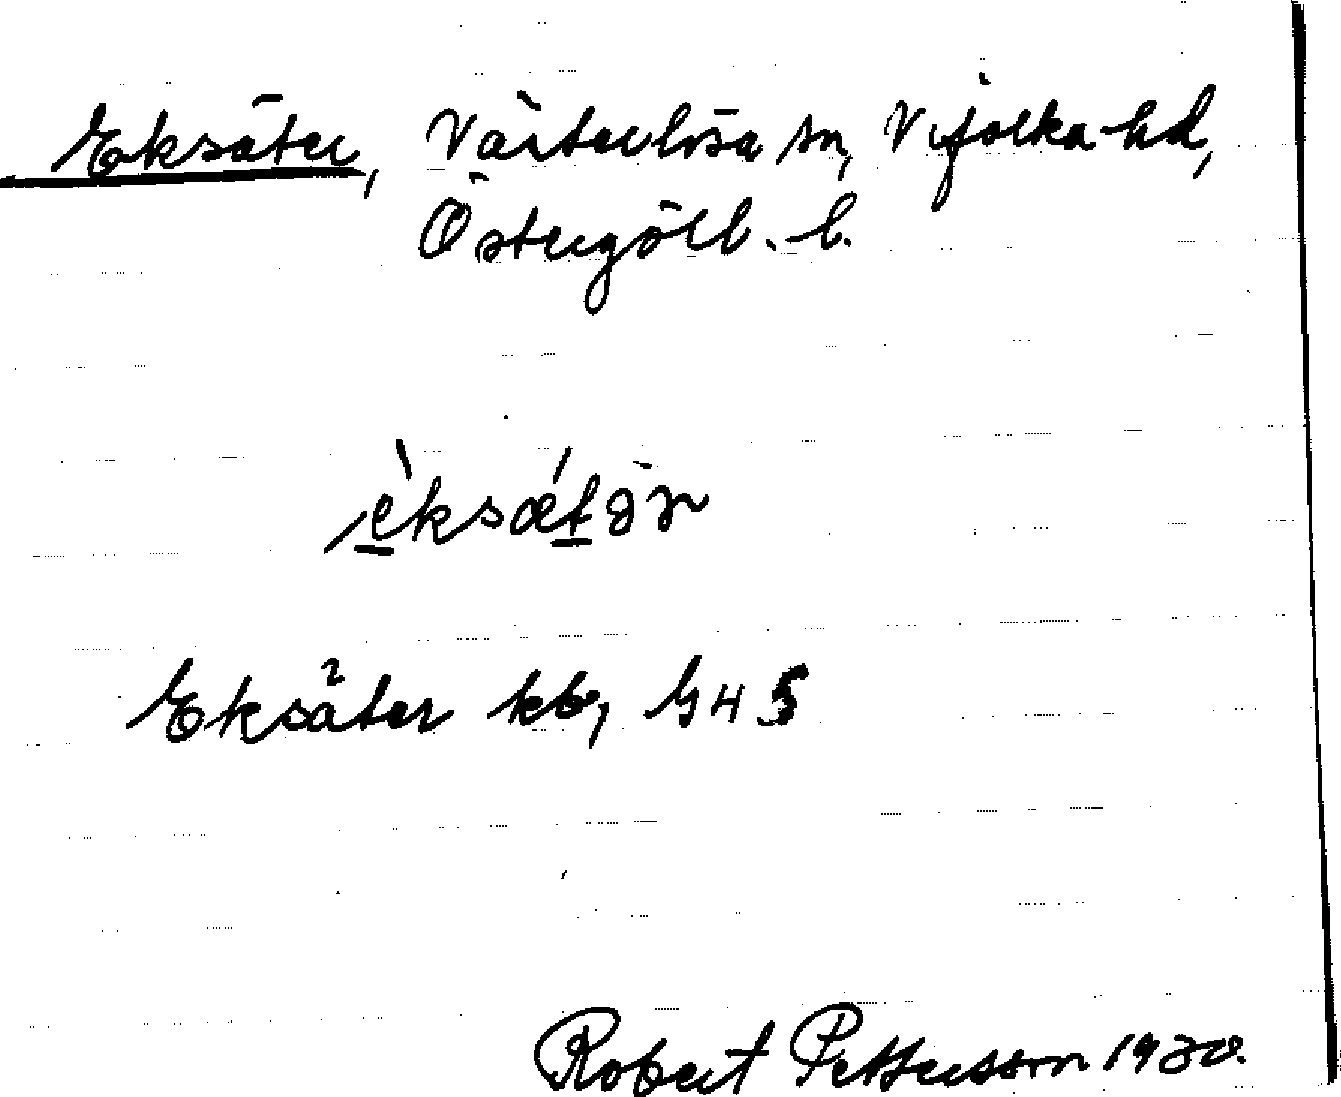 Eksäter, Västerlösa sn, Vifolka hd,
Östergötl. l.
èksǽtər
Eksäter kb, GHS
Robert Pettersson 1930.